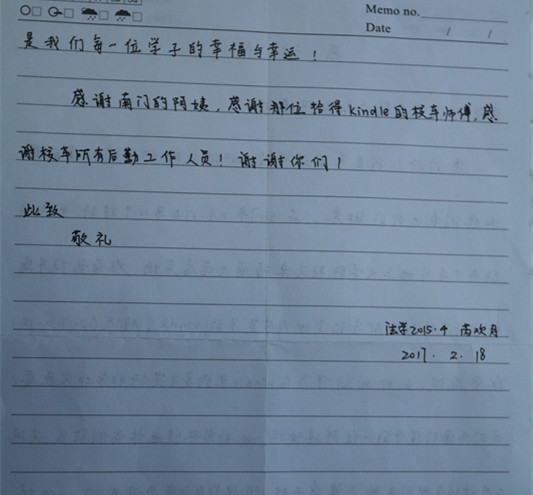 Memo no.
Date / /
是我们每一位学子的幸福与幸运！
感谢南门的阿姨,感谢那位拾得kindle的校车师傅,感
谢校车所有后勤工作人员！谢谢你们！
此致
敬礼
法学2015·4 芮欢月
2017. 2. 18